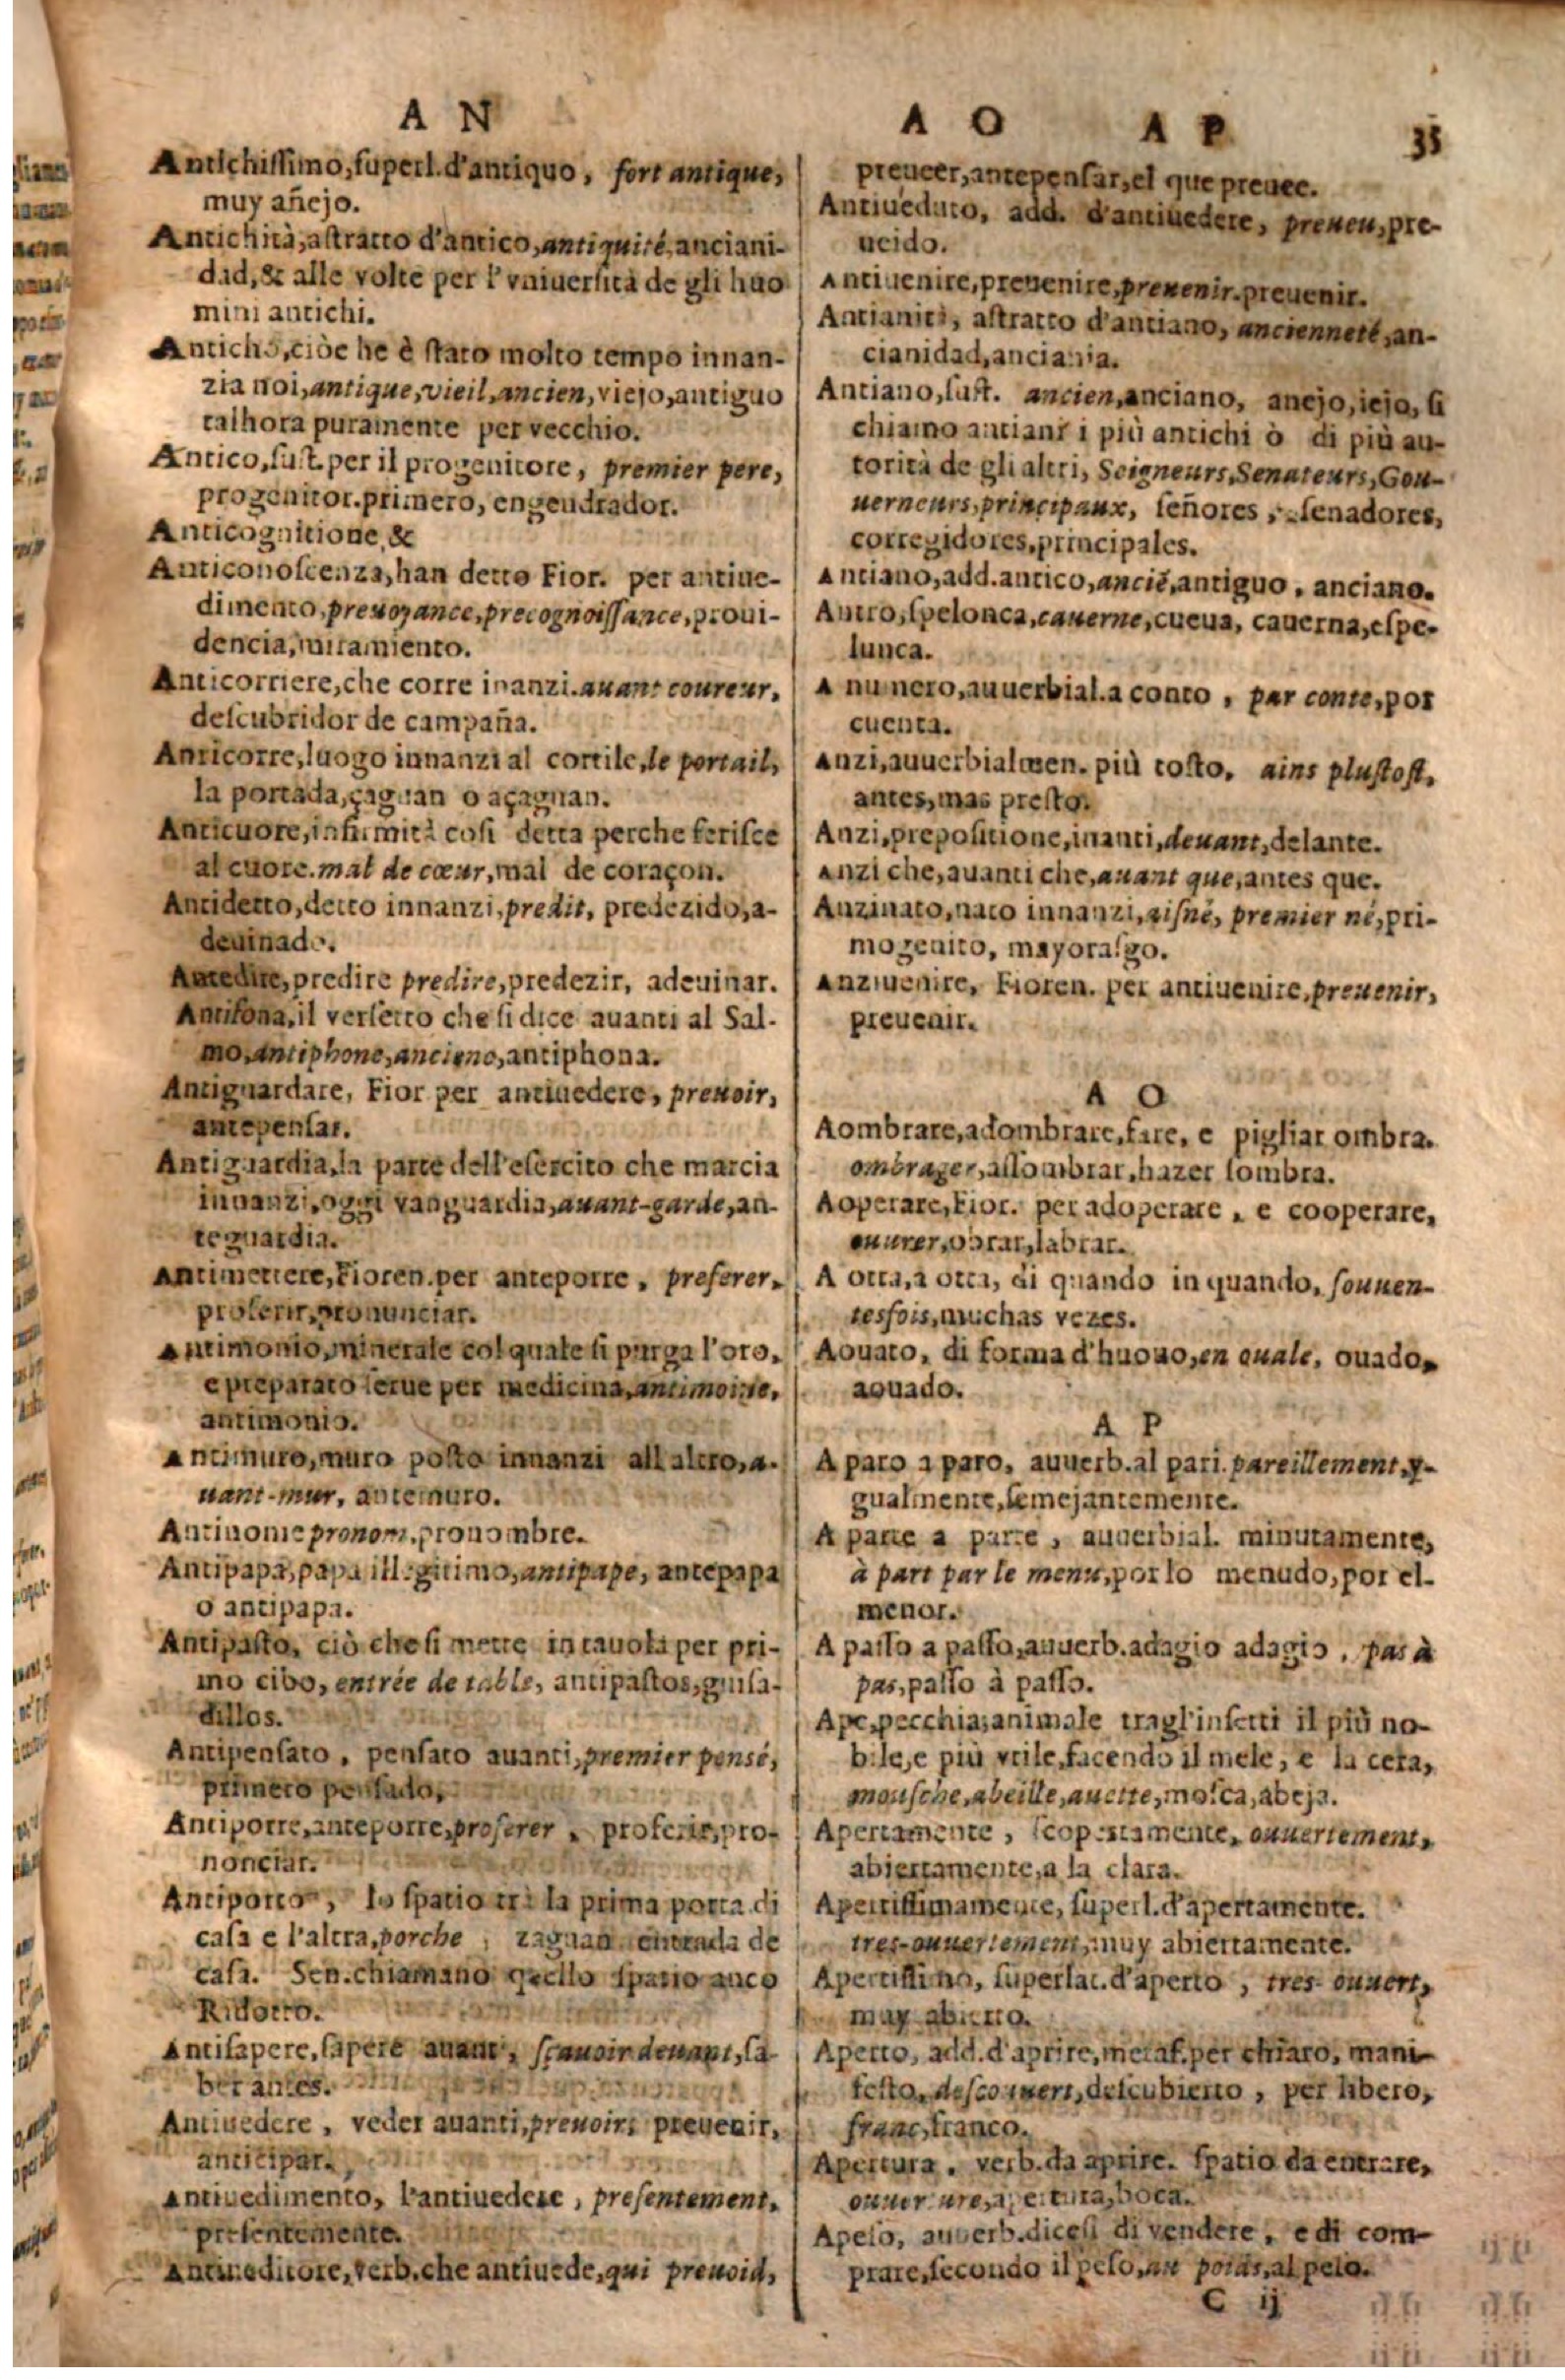 A N
Antichissimo, superl. d'antiquo, fort antique,
muy añejo.
Antichità, astratto d'antico, antiquité, anciani-
dad, & alle volte per l'vniuersità de gli huo
mini antichi.
Anticho, ciòe he è stato molto tempo innan-
zia noi, antique, vieil, ancien, viejo, antiguo
talhora puramente per vecchio.
Antico, sust. per il progenitore, premier pere,
progenitor. primero, engendrador.
Anticognitione, &
Anticonoscenza, han detto Fior. per antiue-
dimento, preuoyance, precognoissance, proui-
dencia, miramiento.
Anticorriere, che corre inanzi. auant coureur,
descubridor de campaña.
Anticorre, luogo innanzi al cortile, le portail,
la portada, çaguan o açaguan.
Anticuore, infirmità cosi detta perche ferisce
al cuore. mal de cœur, mal de coraçon.
Antidetto, detto innanzi, predit, predezido, a-
deuinado.
Antedire, predire predire, predezir, adeuinar.
Antifona, il versetto che si dice auanti al Sal-
mo, antiphone, anciene, antiphona.
Antiguardare, Fior per antiuedere, preuoir,
antepensar.
Antiguardia, la parte dell'esercito che marcia
innanzi, oggi vanguardia, auant-garde, an-
teguardia.
Antimettere, Fioren. per anteporre, preferer.
proferir, pronunciar.
Antimonio, minerale col quale si purga l'oro,
e preparato serue per medicina, antimoine,
antimonio.
Antimuro, muro posto innanzi all altro, a-
uant-mur, antemuro.
Antinome pronom, pronombre.
Antipapa, papa illegitimo, antipape, antepapa
o antipapa.
Antipasto, ciò che si mette in tauola per pri-
mo cibo, entrée de table, antipastos, guisa-
dillos.
Antipensato, pensato auanti, premier pensé,
primero pensado,
Antiporre, anteporre, proferer, proferir, pro-
nonciar.
Antiporto, lo spatio trà la prima porta di
casa e l'altra, porche, zaguan entrada de
casa. Sen. chiamano quello spatio anco
Ridotto.
Antisapere, sapere auant, sçauoir deuant, sa-
ber antes.
Antiuedere, veder auanti, preuoir, preuenir,
anticipar.
Antiuedimento, l'antiuedere, presentement,
presentemente.
Antiueditore, verb. che antiuede, qui preuoid,
A O A P 35
preueer, antepensar, el que preuee.
Antiueduto, add. d'antiuedere, preueu, pre-
ueido.
Antiuenire, preuenire, preuenir. preuenir.
Antianità, astratto d'antiano, ancienneté, an-
cianidad, ancianía.
Antiano, sust. ancien, anciano, anejo, iejo, si
chiamo antiani i più antichi ò di più au-
torità de gli altri, Seigneurs, Senateurs, Gou-
uerneurs, principaux, señores, senadores,
corregidores, principales.
Antiano, add. antico, anciẽ, antiguo, anciano.
Antro, spelonca, cauerne, cueua, cauerna, espe-
lunca.
A numero, auuerbial. a conto, par conte, por
cuenta.
Anzi, auuerbialmen. più tosto, ains plustost,
antes, mas presto.
Anzi, prepositione, inanti, deuant, delante.
Anzi che, auanti che, auant que, antes que.
Anzinato, nato innanzi, aisné, premier né, pri-
mogenito, mayorasgo.
Anziuenire, Fioren. per antiuenire, preuenir,
preuenir.
A O
Aombrare, adombrare, fare, e pigliar ombra.
ombrager, assombrar, hazer sombra.
Aoperare, Fior. per adoperare, e cooperare,
ouurer, obrar, labrar.
A otta, a otta, di quando in quando, souuen-
tesfois, muchas vezes.
Aouato, di forma d'huouo, en ouale, ouado,
aouado.
A P
A paro a paro, auuerb. al pari. pareillement, y-
gualmente, semejantemente.
A parte a parte, auuerbial. minutamente,
à part par le menu, por lo menudo, por el-
menor.
A passo a passo, auuerb. adagio adagio, pas à
pas, passo à passo.
Ape, pecchia; animale tragl'insetti il più no-
bile, e più vtile, facendo il mele, e la cera,
mousche, abeille, auette, mosca, abeja.
Apertamente, scopertamente, ouuertement,
abiertamente, a la clara.
Apertissimamente, superl. d'apertamente.
tres-ouuertement, muy abiertamente.
Apertissimo, superlat. d'aperto, tres-ouuert,
muy abierto.
Aperto, add. d'aprire, metaf. per chiaro, mani-
festo, descouuert, descubierto, per libero,
franc, franco.
Apertura, verb. da aprire. spatio da entrare,
ouuerture, apertura, boca.
Apeso, auuerb. dicesi di vendere, e di com-
prare, secondo il peso, au poids, al peso.
C ij